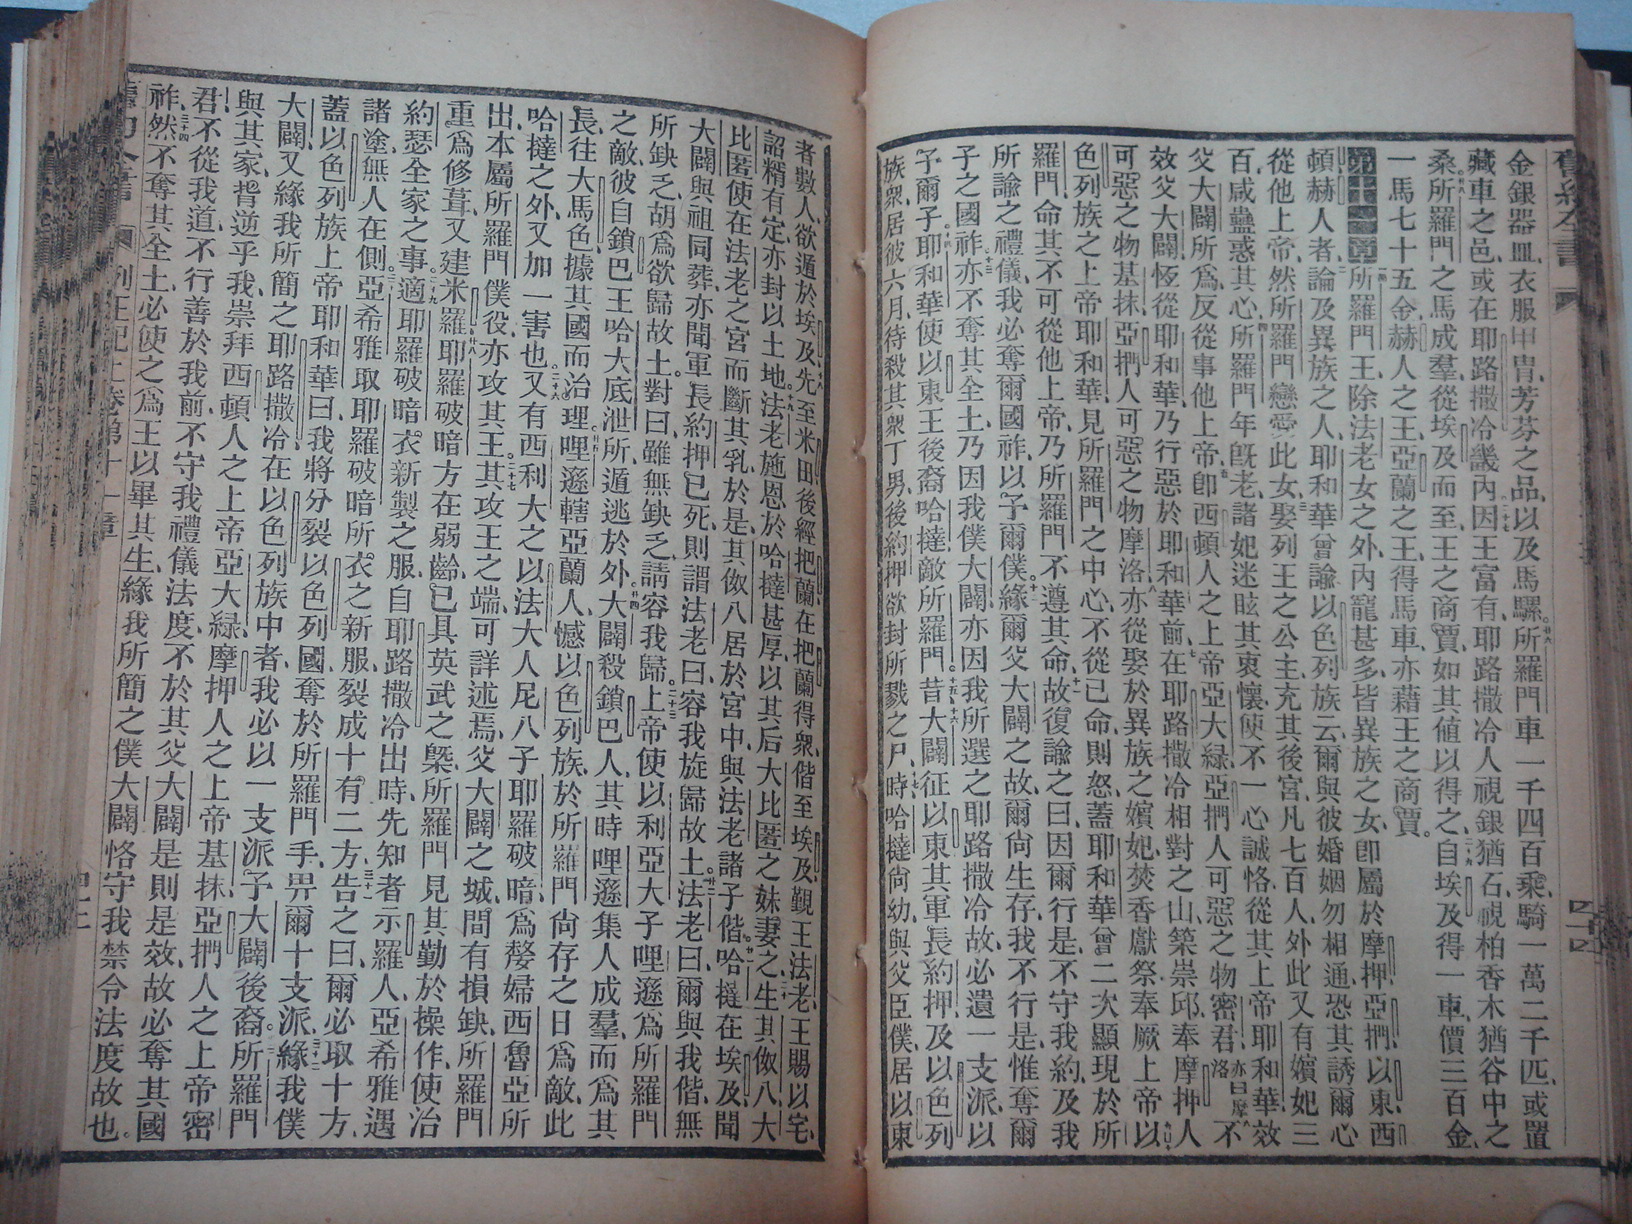 舊約全書
金銀器皿衣服甲冑芳芬之品以及馬騾所羅門車一千四百乘騎一萬二千匹或置
藏車之邑或在耶路撒冷畿內因王富有耶路撒冷人視銀猶石視柏香木猶谷中之
桑所羅門之馬成羣從埃及而至王之商賈如其値以得之自埃及得一車價三百金
一馬七十五金赫人之王亞蘭之王得馬車亦藉王之商賈
第十一章所羅門王除法老女之外內寵甚多皆異族之女卽屬於摩押亞捫以東西
頓赫人者論及異族之人耶和華曾諭以色列族云爾與彼婚姻勿相通恐其誘爾心
從他上帝然所羅門戀愛此女娶列王之公主充其後宮凡七百人外此又有嬪妃三
百咸蠱惑其心所羅門年旣老諸妃迷眩其衷懷使不一心誠恪從其上帝耶和華效
父大闢所爲反從事他上帝卽西頓人之上帝亞大綠亞捫人可惡之物密君亦曰摩洛不
效父大闢恆從耶和華乃行惡於耶和華前在耶路撒冷相對之山築崇邱奉摩押人
可惡之物基抹亞捫人可惡之物摩洛亦從娶於異族之嬪妃焚香獻祭奉厥上帝以
色列族之上帝耶和華見所羅門之中心不從已命則怒蓋耶和華曾二次顯現於所
羅門命其不可從他上帝乃所羅門不遵其命故復諭之曰因爾行是不守我約及我
所諭之禮儀我必奪爾國祚以予爾僕緣爾父大闢之故爾尙生存我不行是惟奪爾
子之國祚亦不奪其全土乃因我僕大闢亦因我所選之耶路撒冷故必遺一支派以
予爾子耶和華使以東王後裔哈撻敵所羅門昔大闢征以東其軍長約押及以色列
族衆居彼六月待殺其衆丁男後約押欲封所戮之尸時哈撻尙幼與父臣僕居以東
者數人欲遁於埃及先至米田後經把蘭在把蘭得衆偕至埃及覲王法老王賜以宅
詔糈有定亦封以土地法老施恩於哈撻甚厚以其后大比匿之妹妻之生其俶八大
比匿使在法老之宮而斷其乳於是其俶八居於宮中與法老諸子偕哈撻在埃及聞
大闢與祖同葬亦聞軍長約押已死則謂法老曰容我旋歸故土法老曰爾與我偕無
所缺乏胡爲欲歸故土對曰雖無缺乏請容我歸上帝使以利亞大子哩遜爲所羅門
之敵彼自鎖巴王哈大底泄所遁逃於外大闢殺鎖巴人其時哩遜集人成羣而爲其
長往大馬色據其國而治理哩遜轄亞蘭人憾以色列族於所羅門尙存之日爲敵此
哈撻之外又加一害也又有西利大之以法大人尼八子耶羅破暗爲嫠婦西魯亞所
出本屬所羅門僕役亦攻其王其攻王之端可詳述焉父大闢之城間有損缺所羅門
重爲修葺又建米羅耶羅破暗方在弱齡已具英武之槩所羅門見其勤於操作使治
約瑟全家之事適耶羅破暗衣新製之服自耶路撒冷出時先知者示羅人亞希雅遇
諸塗無人在側亞希雅取耶羅破暗所衣之新服裂成十有二方告之曰爾必取十方
蓋以色列族上帝耶和華曰我將分裂以色列國奪於所羅門手畀爾十支派緣我僕
大闢又緣我所簡之耶路撒冷在以色列族中者我必以一支派予大闢後裔所羅門
與其家胥逆乎我崇拜西頓人之上帝亞大綠摩押人之上帝基抹亞捫人之上帝密
君不從我道不行善於我前不守我禮儀法度不於其父大闢是則是效故必奪其國
祚然不奪其全土必使之爲王以畢其生緣我所簡之僕大闢恪守我禁令法度故也
列王紀上卷第十一章